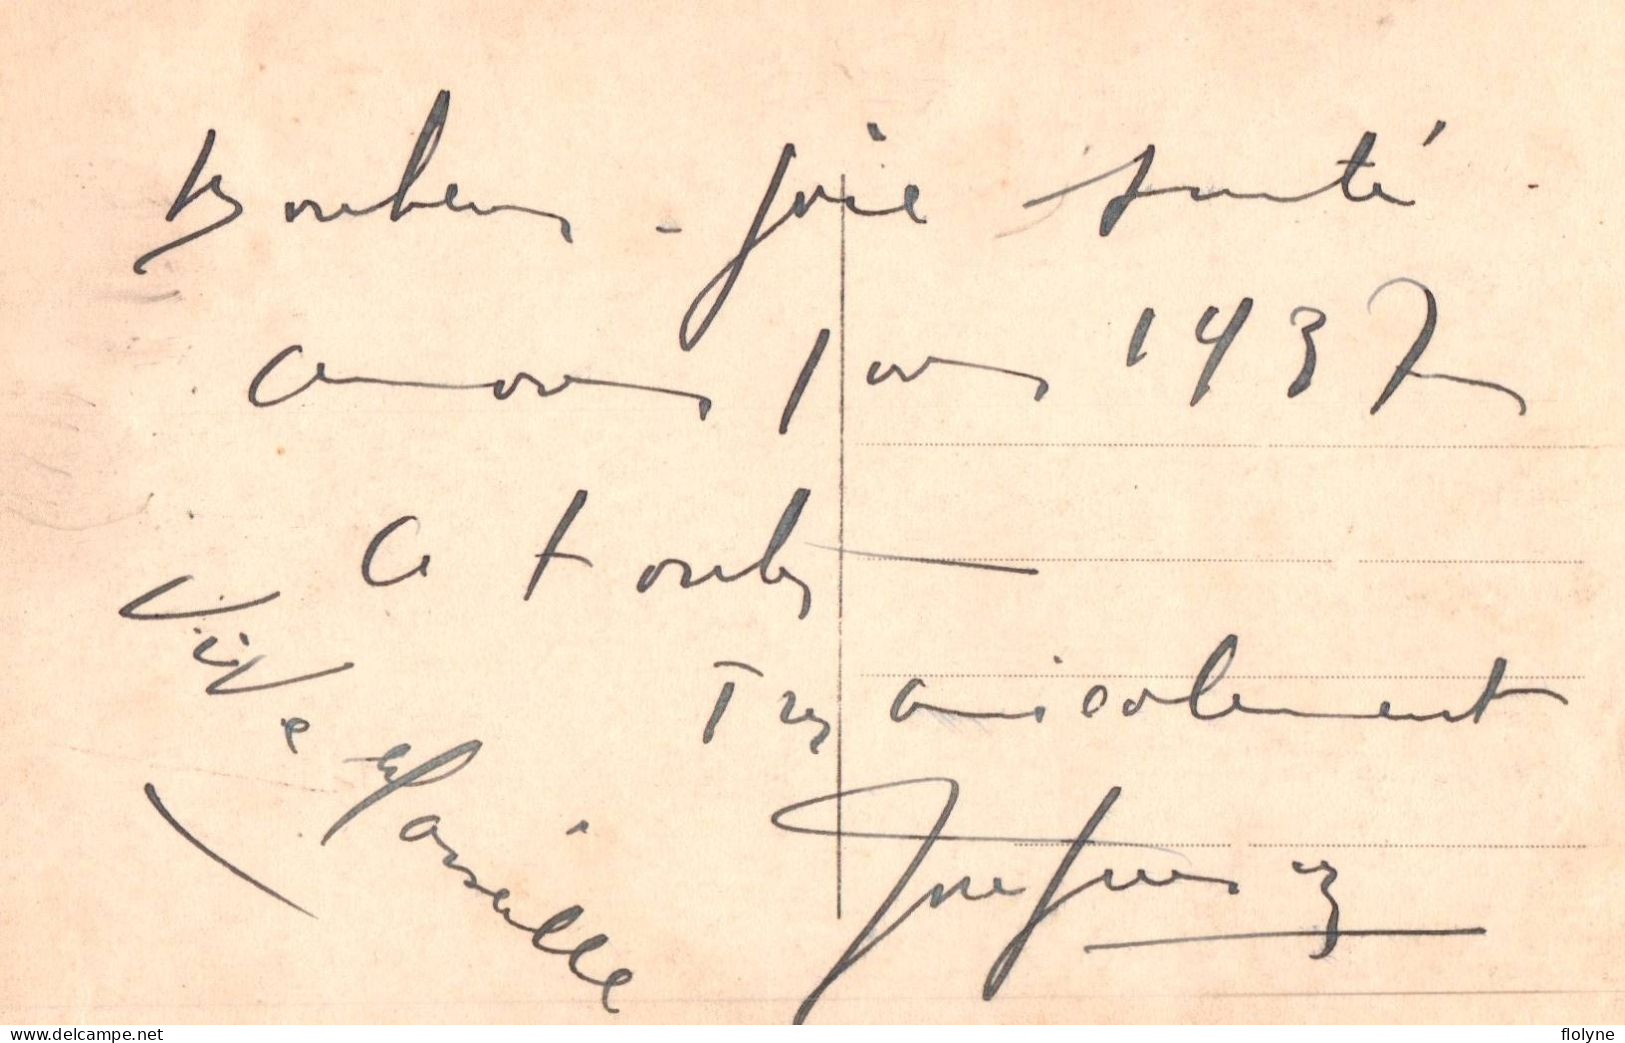 Bonheur - joie santé
amour pour 1937
a toutes
Très amicalement
Vive Marseille
www.delcampe.net
flolyne